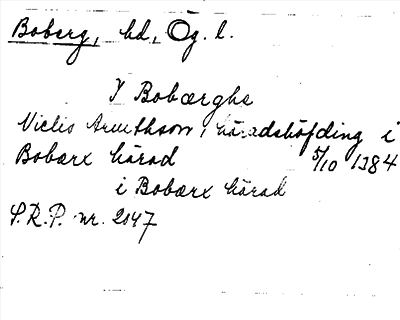 Boberg, hd, Ög. l.
I Bobærghe
Niclis Arnuthson, häradshöfding i
Bobærx härad 5/10 1384
i Bobærx härad
S.R.P. nr. 2047